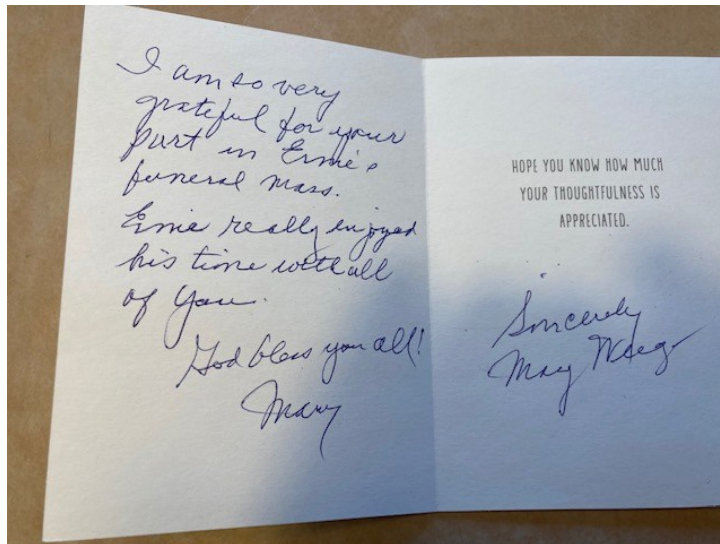 I am so very
grateful for your
part in Ernie's
funeral mass.
Ernie really enjoyed
his time with all
of you.
God bless you all!
Mary
HOPE YOU KNOW HOW MUCH
YOUR THOUGHTFULNESS IS
APPRECIATED.
Sincerely
Mary